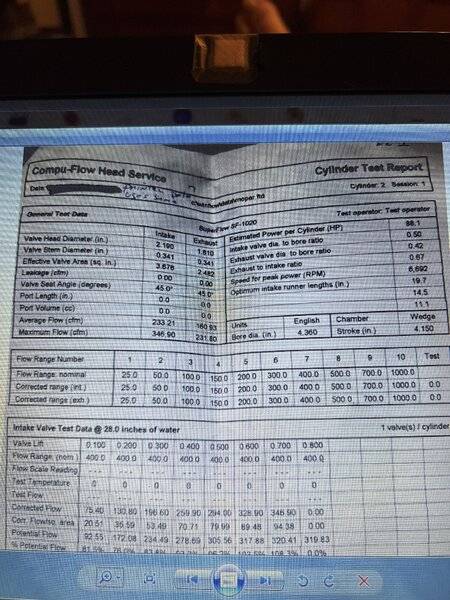 Compu-Flow Head Service
Cylinder Test Report
Date:
c:\winflow\data\mopar ltd
Cylinder: 2 Session: 1
General Test Data
SuperFlow SF-1020
Test operator: Test operator
Intake Exhaust
Valve Head Diameter (in.) 2.190 1.810
Valve Stem Diameter (in.) 0.341 0.341
Effective Valve Area (sq. in.) 3.676 2.482
Leakage (cfm) 0.00 0.00
Valve Seat Angle (degrees) 45.0° 45.0°
Port Length (in.) 0.0 0.0
Port Volume (cc) 0.0 0.0
Average Flow (cfm) 233.21 160.93
Maximum Flow (cfm) 346.90 231.80
Estimated Power per Cylinder (HP) 88.1
Intake valve dia. to bore ratio 0.50
Exhaust valve dia. to bore ratio 0.42
Exhaust to intake ratio 0.67
Speed for peak power (RPM) 6,692
Optimum intake runner lengths (in.) 19.7
14.5
11.1
Units English Chamber Wedge
Bore dia. (in.) 4.360 Stroke (in.) 4.150
Flow Range Number 1 2 3 4 5 6 7 8 9 10 Test
Flow Range: nominal 25.0 50.0 100.0 150.0 200.0 300.0 400.0 500.0 700.0 1000.0
Corrected range (int.) 25.0 50.0 100.0 150.0 200.0 300.0 400.0 500.0 700.0 1000.0 0.0
Corrected range (exh.) 25.0 50.0 100.0 150.0 200.0 300.0 400.0 500.0 700.0 1000.0 0.0
Intake Valve Test Data @ 28.0 inches of water
1 valve(s) / cylinder
Valve Lift 0.100 0.200 0.300 0.400 0.500 0.600 0.700 0.800
Flow Range: (nom.) 400.0 400.0 400.0 400.0 400.0 400.0 400.0 400.0
Flow Scale Reading
Test Temperature 0 0 0 0 0 0 0 0
Test Flow
Corrected Flow 75.40 130.80 196.60 259.90 294.00 328.90 346.90 0.00
Corr. Flow/sq. area 20.51 35.59 53.49 70.71 79.99 89.48 94.38 0.00
Potential Flow 92.55 172.08 234.49 278.69 305.56 317.88 320.41 319.83
% Potential Flow 81.5% 76.0% 103.5% 108.3% 0.0%